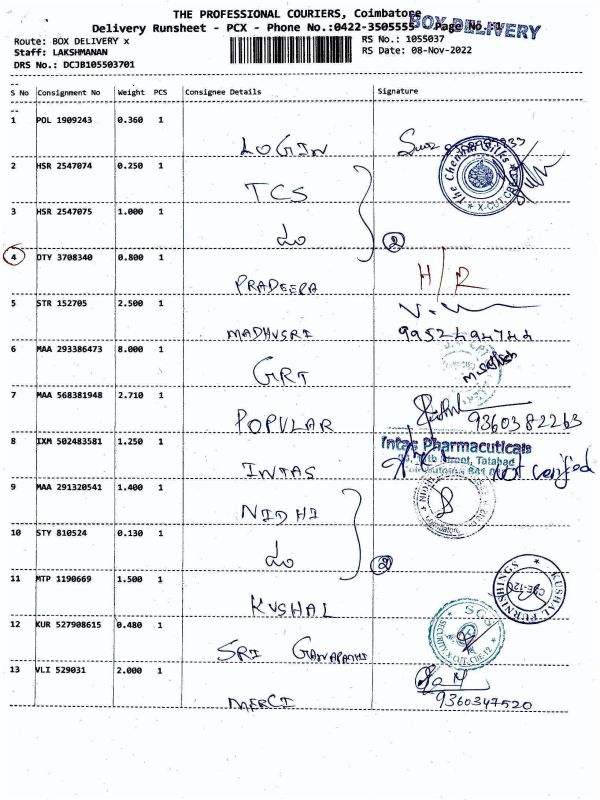 THE PROFESSIONAL COURIERS, Coimbatore
Delivery Runsheet - PCX - Phone No.:0422-3505555 Page No.:1
BOX DELIVERY
Route: BOX DELIVERY x
RS No.: 1055037
Staff: LAKSHMANAN
RS Date: 08-Nov-2022
DRS No.: DCJB105503701
S No Consignment No Weight PCS Consignee Details Signature
1 POL 1909243 0.360 1
LOGIN
The Chennai Silks
X-CUT, CBE
2 HSR 2547074 0.250 1
TCS
3 HSR 2547075 1.000 1
2
4 DTY 3708340 0.800 1
PRADEEPA H/R
5 STR 152705 2.500 1
MADHUSRI 9952494744
6 MAA 293386473 8.000 1
GRT
7 MAA 568381948 2.710 1
POPULAR 9360382263
8 IXM 502483581 1.250 1
Intas Pharmacuticals
Street, Tatabad
INTAS not verified
9 MAA 291320541 1.400 1
NIDHI
10 STY 810524 0.130 1
2
11 MTP 1190669 1.500 1
KUSHAL
KUSHAL FURNISHINGS
CBE-12
12 KUR 527908615 0.480 1
SRI GANAPATHI
SECURITY X-CUT, CBE-12
13 VLI 529031 2.000 1
MERCI 9360347520